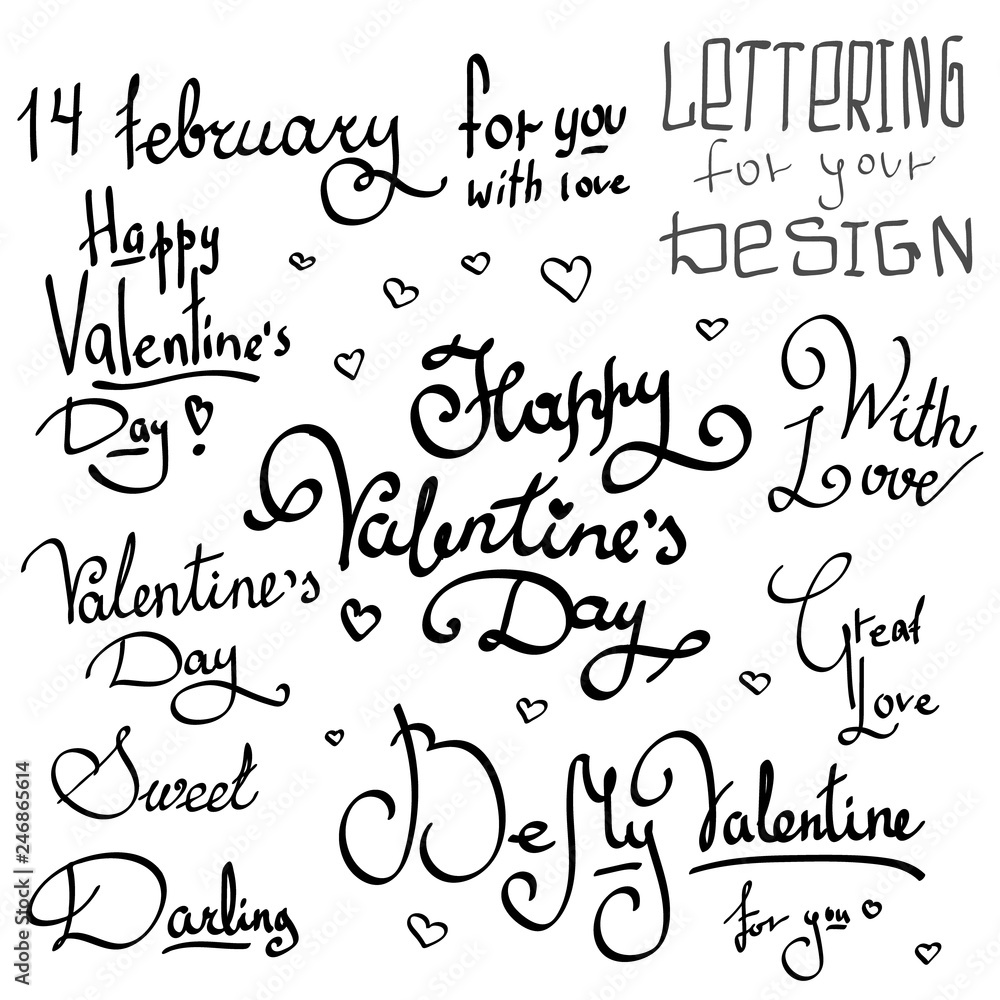 14 February
for you
with love
LETTERING
for your
DESIGN
Happy
Valentine's
Day!
Happy
Valentine's
Day
With
Love
Valentine's
Day
Great
Love
Sweet
Darling
Be My Valentine
for you
Adobe Stock | #246865614